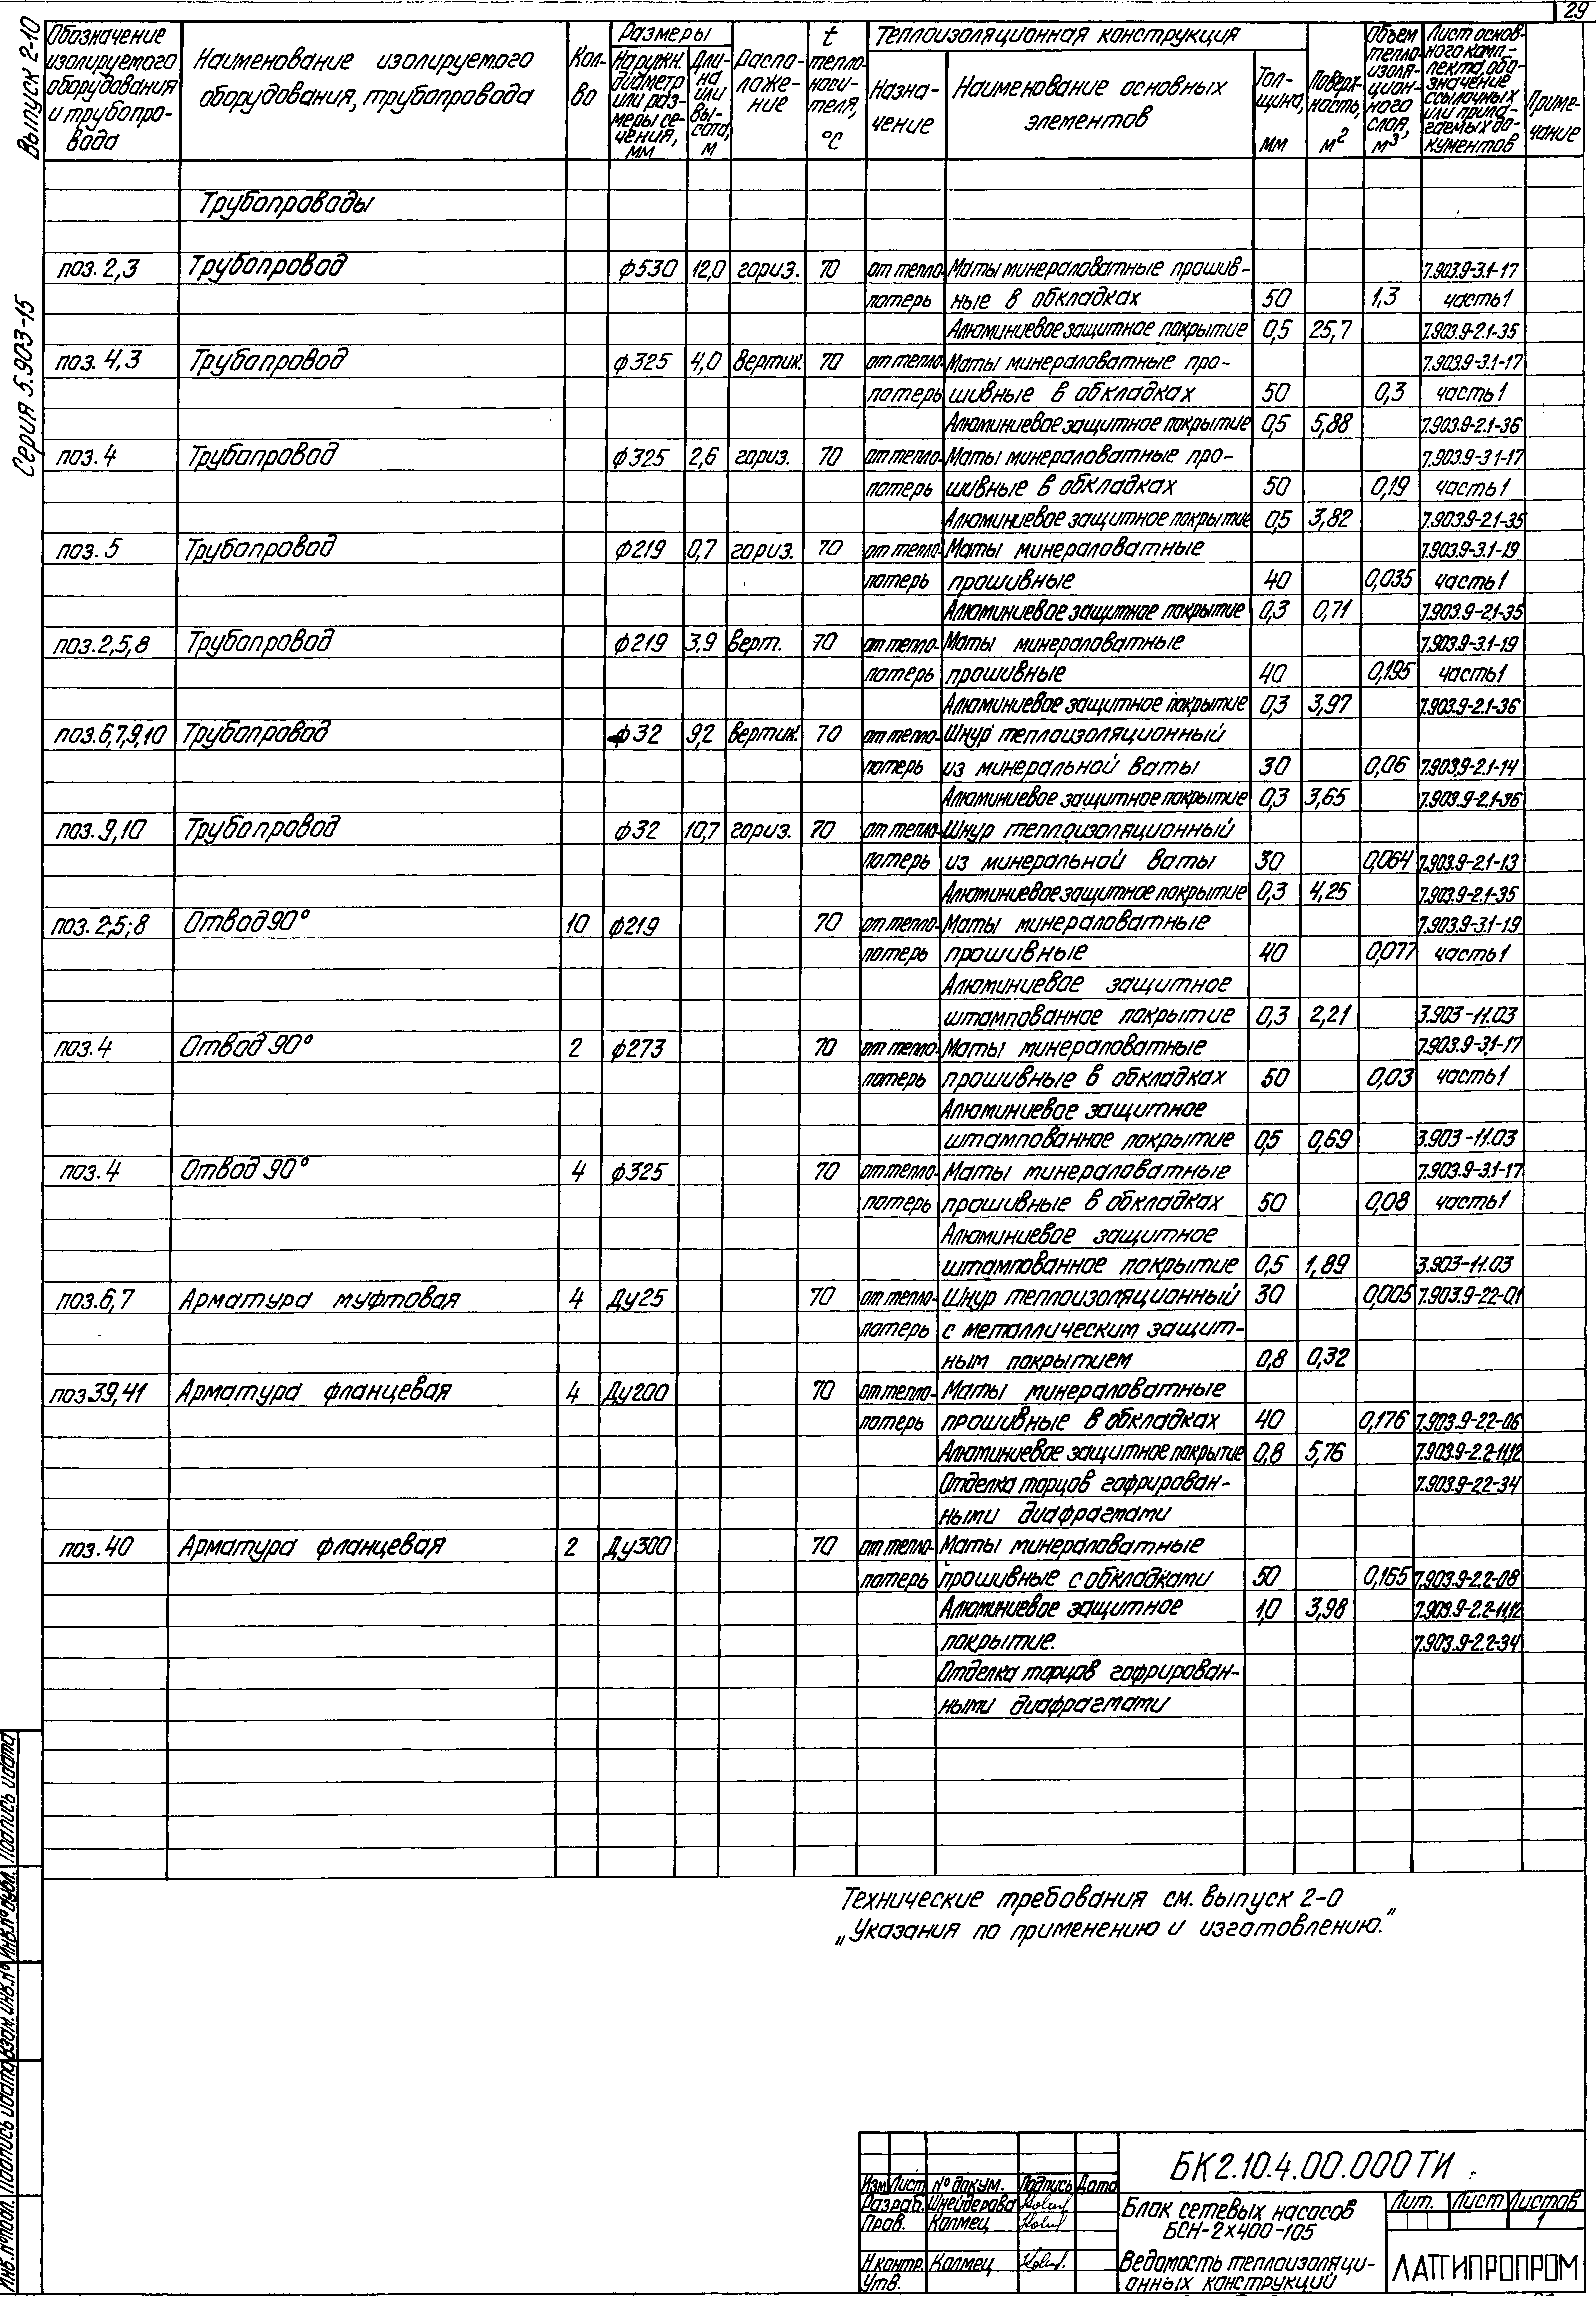 29
Выпуск 2-10
Серия 5.903-15
Обозначение изолируемого оборудования и трубопровода
Наименование изолируемого оборудования, трубопровода
Кол-во
Размеры
Наружн. диаметр или размеры сечения, мм
Длина или высота, м
Расположение
t теплоносителя, °С
Теплоизоляционная конструкция
Назначение
Наименование основных элементов
Толщина, мм
Поверхность, м²
Объем теплоизоляционного слоя, м³
Лист основного комплекта, обозначение ссылочных или прилагаемых документов
Примечание
Трубопроводы
поз. 2,3 Трубопровод ф530 12,0 гориз. 70 от тепло- Маты минераловатные прошив- 7.903.9-3.1-17
потерь ные в обкладках 50 1,3 часть1
Алюминиевое защитное покрытие 0,5 25,7 7.903.9-2.1-35
поз. 4,3 Трубопровод ф325 4,0 вертик. 70 от тепло- Маты минераловатные про- 7.903.9-3.1-17
потерь шивные в обкладках 50 0,3 часть1
Алюминиевое защитное покрытие 0,5 5,88 7.903.9-2.1-36
поз. 4 Трубопровод ф325 2,6 гориз. 70 от тепло- Маты минераловатные про- 7.903.9-3.1-17
потерь шивные в обкладках 50 0,19 часть1
Алюминиевое защитное покрытие 0,5 3,82 7.903.9-2.1-35
поз. 5 Трубопровод ф219 0,7 гориз. 70 от тепло- Маты минераловатные 7.903.9-3.1-19
потерь прошивные 40 0,035 часть1
Алюминиевое защитное покрытие 0,3 0,71 7.903.9-2.1-35
поз. 2,5,8 Трубопровод ф219 3,9 верт. 70 от тепло- Маты минераловатные 7.903.9-3.1-19
потерь прошивные 40 0,195 часть1
Алюминиевое защитное покрытие 0,3 3,97 7.903.9-2.1-36
поз.6,7,9,10 Трубопровод ф32 9,2 вертик. 70 от тепло- Шнур теплоизоляционный
потерь из минеральной ваты 30 0,06 7.903.9-2.1-14
Алюминиевое защитное покрытие 0,3 3,65 7.903.9-2.1-36
поз. 9,10 Трубопровод ф32 10,7 гориз. 70 от тепло- Шнур теплоизоляционный
потерь из минеральной ваты 30 0,064 7.903.9-2.1-13
Алюминиевое защитное покрытие 0,3 4,25 7.903.9-2.1-35
поз. 2,5;8 Отвод 90° 10 ф219 70 от тепло- Маты минераловатные 7.903.9-3.1-19
потерь прошивные 40 0,077 часть1
Алюминиевое защитное
штампованное покрытие 0,3 2,21 3.903-11.03
поз. 4 Отвод 90° 2 ф273 70 от тепло- Маты минераловатные 7.903.9-3.1-17
потерь прошивные в обкладках 50 0,03 часть1
Алюминиевое защитное
штампованное покрытие 0,5 0,69 3.903-11.03
поз. 4 Отвод 90° 4 ф325 70 от тепло- Маты минераловатные 7.903.9-3.1-17
потерь прошивные в обкладках 50 0,08 часть1
Алюминиевое защитное
штампованное покрытие 0,5 1,89 3.903-11.03
поз.6,7 Арматура муфтовая 4 Ду25 70 от тепло- Шнур теплоизоляционный 30 0,005 7.903.9-2.2-01
потерь с металлическим защит-
ным покрытием 0,8 0,32
поз.39,41 Арматура фланцевая 4 Ду200 70 от тепло- Маты минераловатные
потерь прошивные в обкладках 40 0,176 7.903.9-2.2-06
Алюминиевое защитное покрытие 0,8 5,76 7.903.9-2.2-11,12
Отделка торцов гофрирован- 7.903.9-2.2-34
ными диафрагмами
поз. 40 Арматура фланцевая 2 Ду300 70 от тепло- Маты минераловатные
потерь прошивные с обкладками 50 0,165 7.903.9-2.2-08
Алюминиевое защитное 1,0 3,98 7.903.9-2.2-11,12
покрытие. 7.903.9-2.2-34
Отделка торцов гофрирован-
ными диафрагмами
Технические требования см. выпуск 2-0
„Указания по применению и изготовлению."
Инв. № подл. Подпись и дата Взам. инв. № Инв. № дубл. Подпись и дата
БК2.10.4.00.000 ТИ
Изм Лист № докум. Подпись Дата
Разраб. Шнейдерова
Пров. Колмец
Н.контр. Колмец
Утв.
Блок сетевых насосов
БСН-2х400-105
Ведомость теплоизоляци-
онных конструкций
Лит. Лист Листов
1
ЛАТГИПРОПРОМ